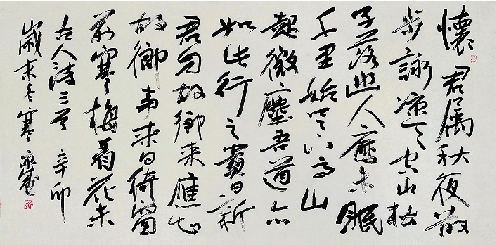 懷君屬秋夜散
步詠凉天空山松
子落幽人應未眠
千里始足下高山
起微塵吾道亦
如此行之貴日新
君自故鄉來應知
故鄉事來日綺窗
前寒梅著花未
古人詩三首 辛卯
歲末冬寒